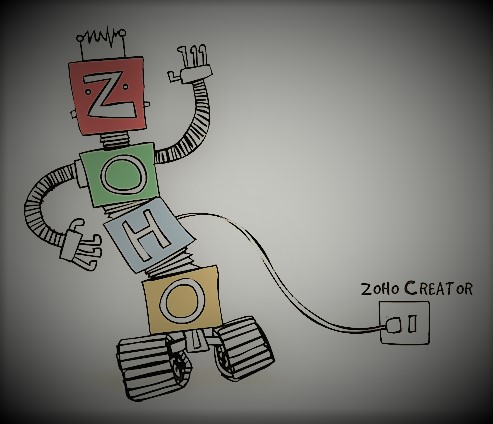 Z
O
H
O
ZOHO CREATOR